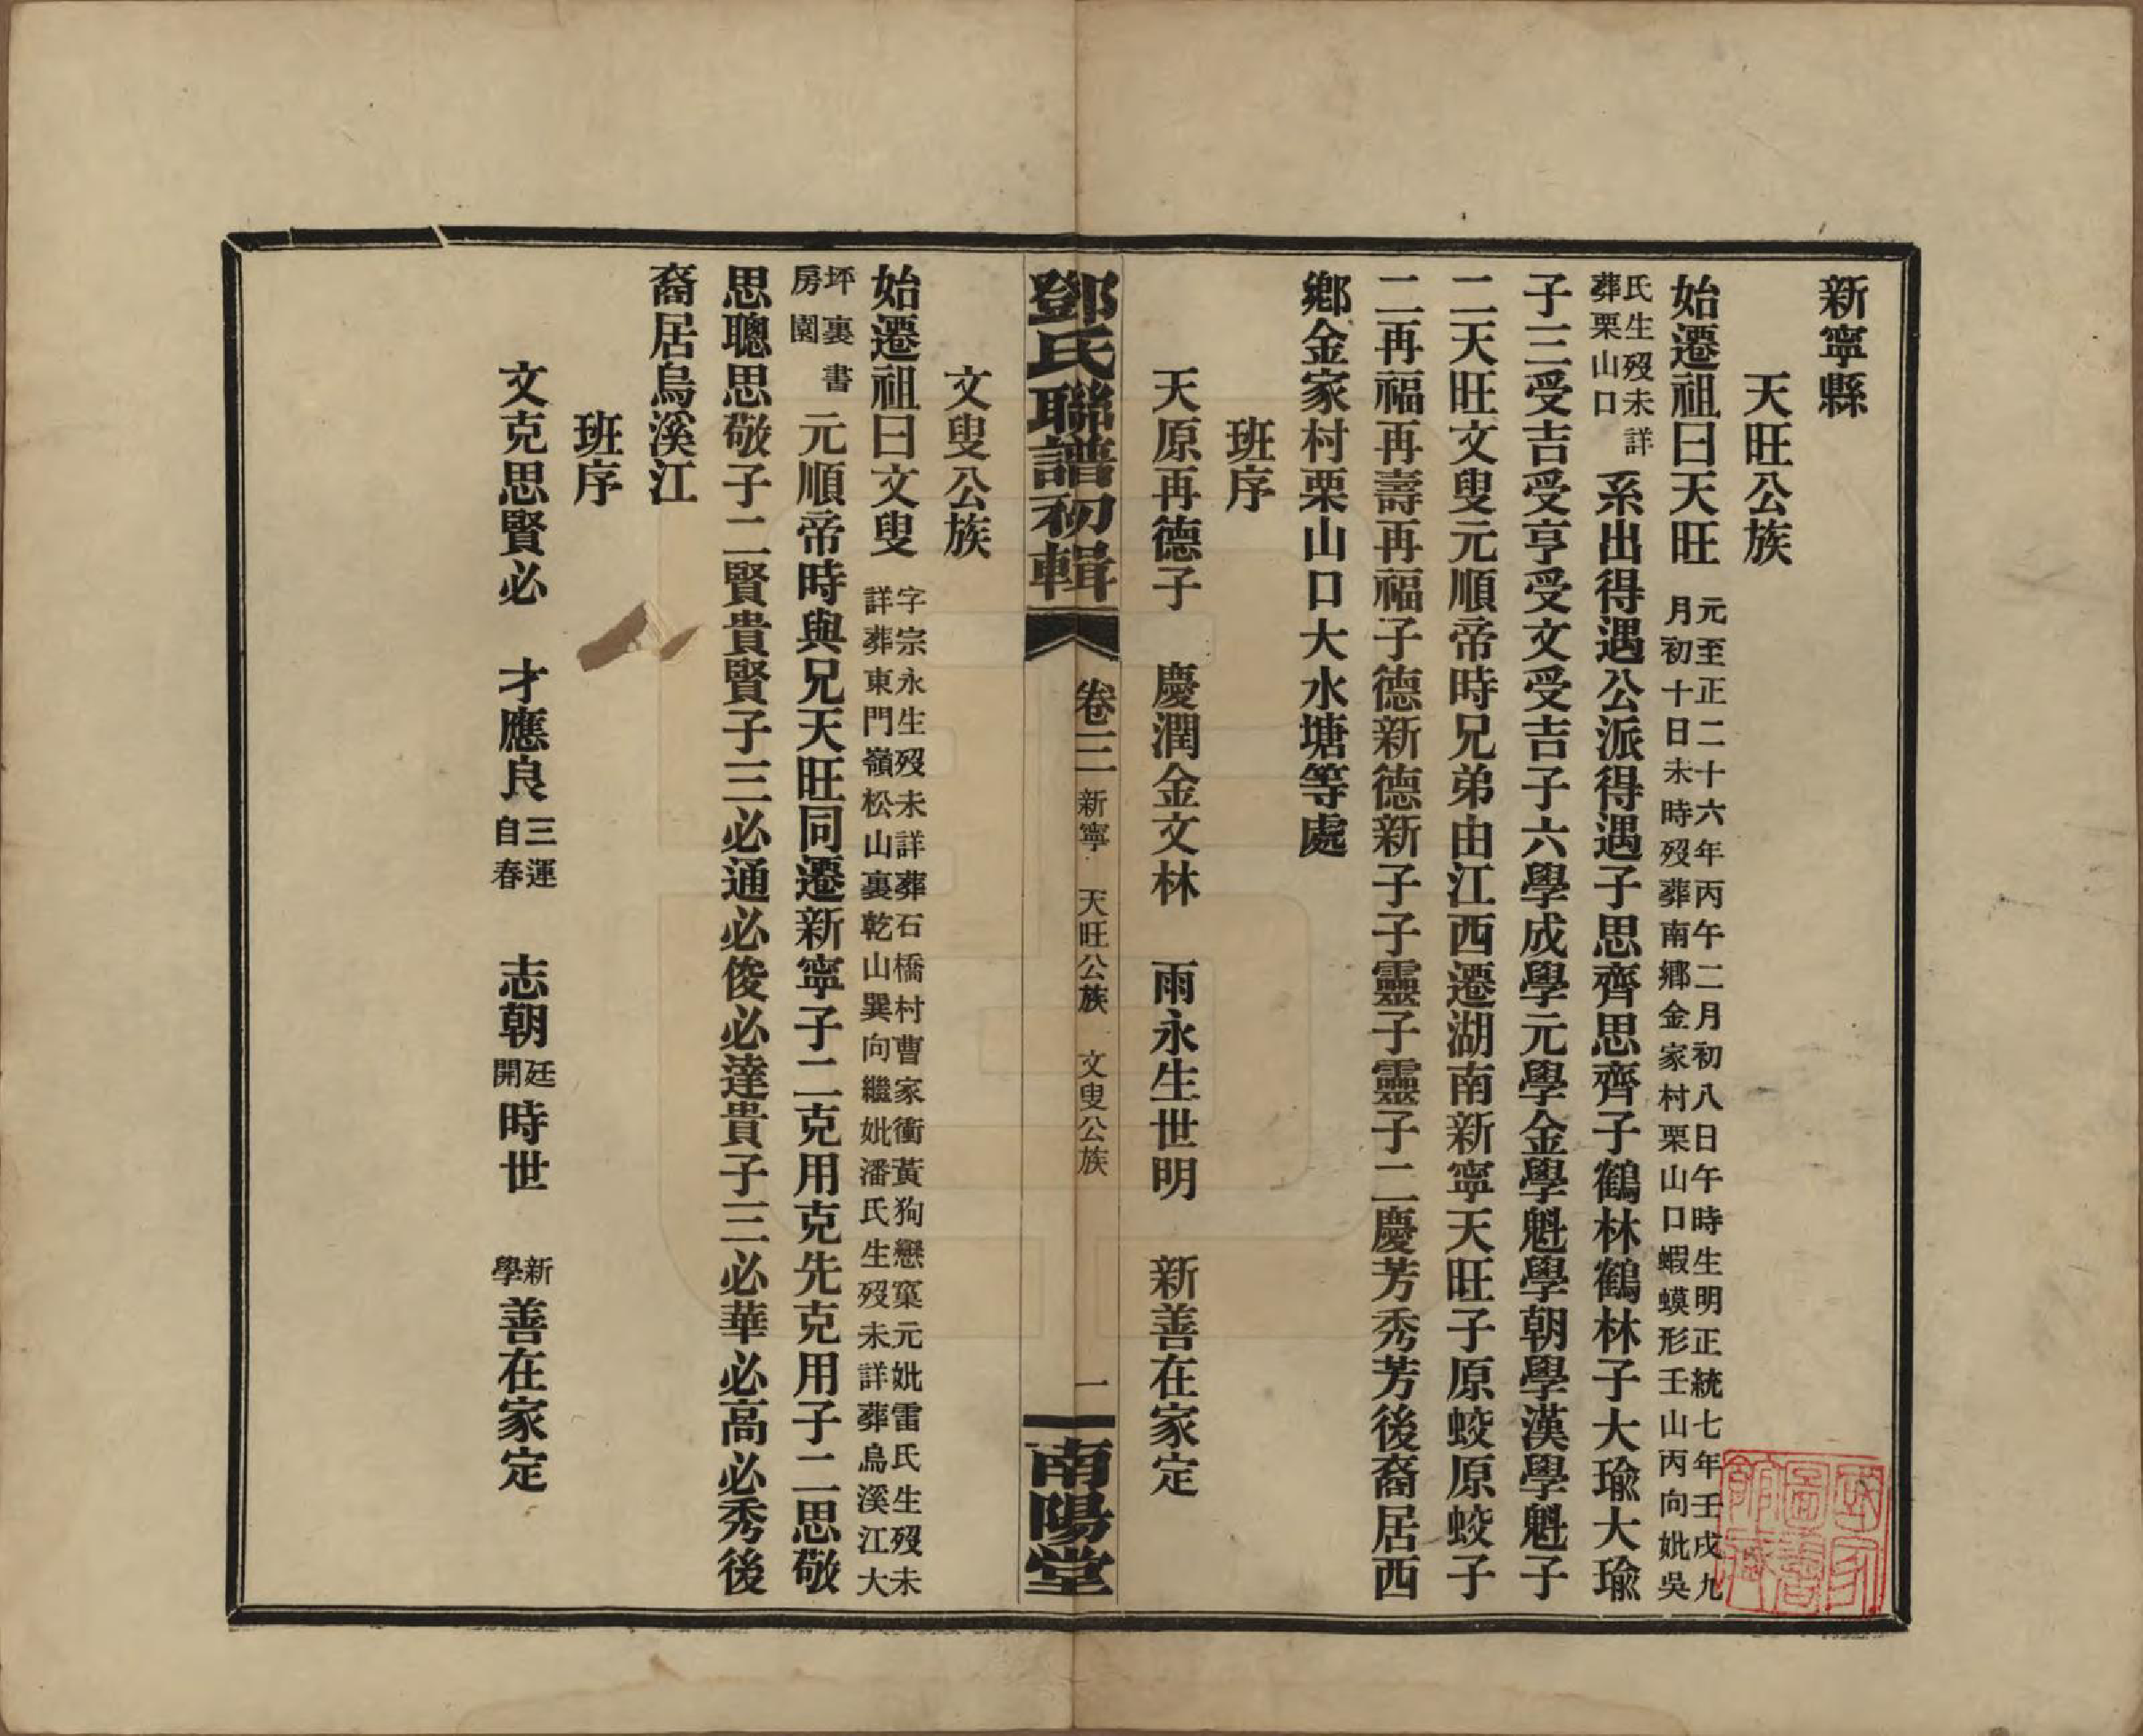 新寧縣
天旺公族
始遷祖曰天旺 元至正二十六年丙午二月初八日午時生明正統七年壬戌九
月初十日未時歿葬南鄉金家村栗山口蝦蟆形壬山丙向妣吳
氏生歿未詳
葬栗山口
系出得遇公派得遇子思齊思齊子鶴林鶴林子大瑜大瑜
子三受吉受亨受文受吉子六學成學元學金學魁學朝學漢學魁子
二天旺文叟元順帝時兄弟由江西遷湖南新寧天旺子原蛟原蛟子
二再福再壽再福子德新德新子子靈子靈子二慶芳秀芳後裔居西
鄉金家村栗山口大水塘等處
班序
天原再德子 慶潤金文林 雨永生世明 新善在家定
鄧氏聯譜初輯 卷三 新寧 天旺公族 文叟公族 一 南陽堂
文叟公族
始遷祖曰文叟 字宗永生歿未詳葬石橋村曹家衝黃狗戀窠元妣雷氏生歿未
詳葬東門嶺松山裏乾山巽向繼妣潘氏生歿未詳葬烏溪江大
坪裏書
房園
元順帝時與兄天旺同遷新寧子二克用克先克用子二思敬
思聰思敬子二賢貴賢子三必通必俊必達貴子三必華必高必秀後
裔居烏溪江
班序
文克思賢必 才應良 三運
自春 志朝 廷
開 時世 新
學 善在家定